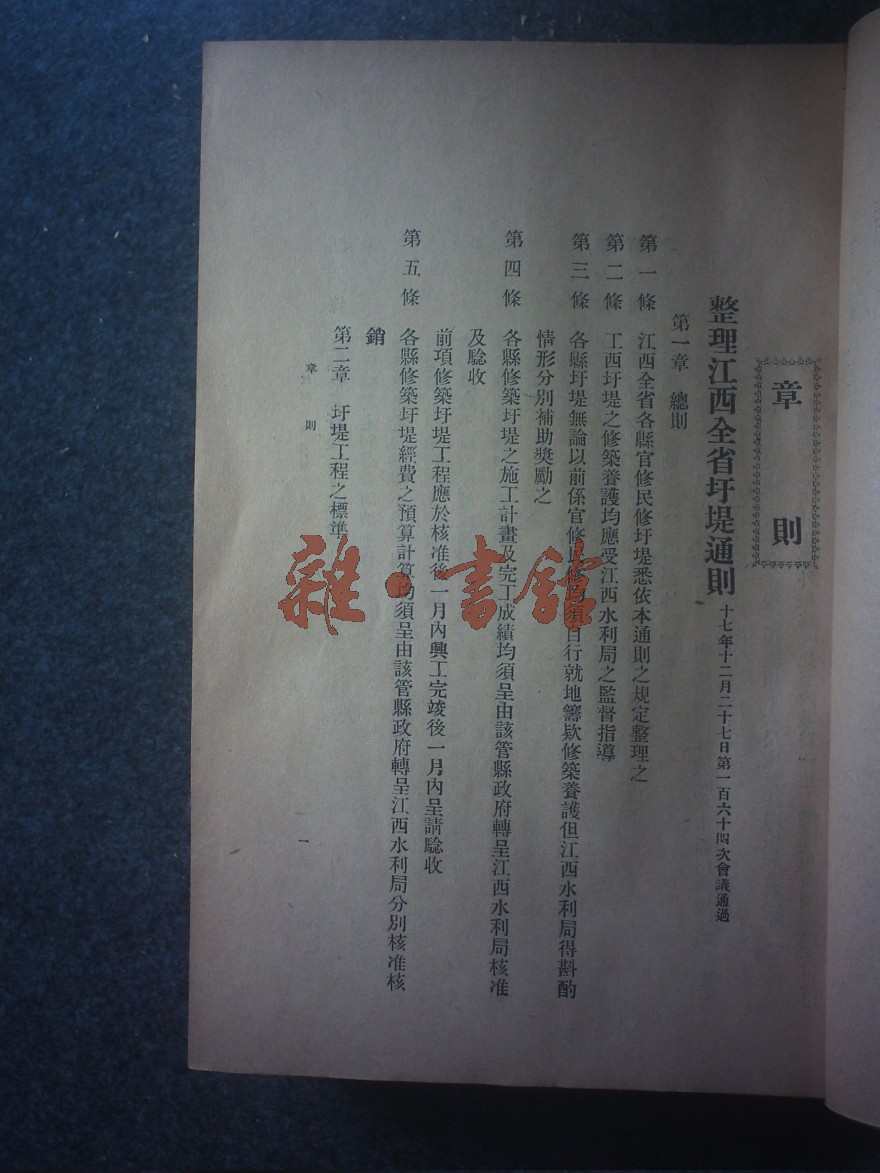 章則
整理江西全省圩堤通則 十七年十二月二十七日第一百六十四次會議通過
第一章 總則
第一條 江西全省各縣官修民修圩堤悉依本通則之規定整理之
第二條 工西圩堤之修築養護均應受江西水利局之監督指導
第三條 各縣圩堤無論以前係官修民修均須自行就地籌欵修築養護但江西水利局得斟酌
情形分別補助獎勵之
第四條 各縣修築圩堤之施工計畫及完工成績均須呈由該管縣政府轉呈江西水利局核准
及驗收
前項修築圩堤工程應於核准後一月內興工完竣後一月內呈請驗收
第五條 各縣修築圩堤經費之預算計算均須呈由該管縣政府轉呈江西水利局分別核准核
銷
第二章 圩堤工程之標準
章則
一
雜·書館